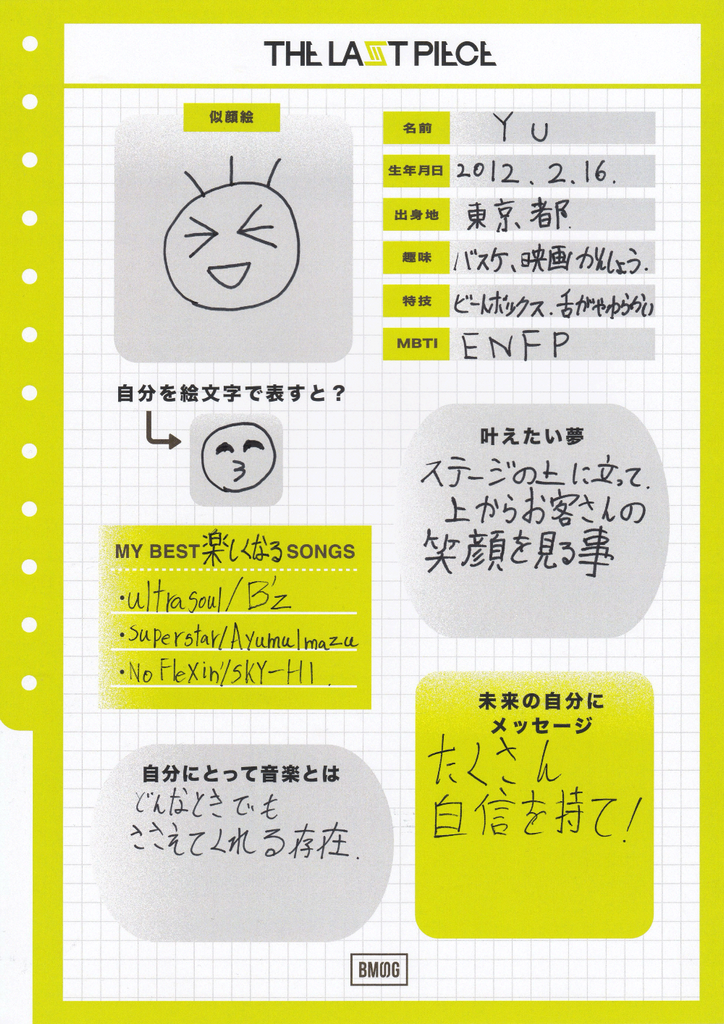 THE LAST PIECE
似顔絵
名前 YU
生年月日 2012.2.16.
出身地 東京、都
趣味 バスケ、映画かんしょう.
特技 ビートボックス.舌がやわらかい
MBTI ENFP
自分を絵文字で表すと?
叶えたい夢
ステージの上に立って.
上からお客さんの
笑顔を見る事
MY BEST 楽しくなる SONGS
・ultra soul/B'z
・superstar/Ayumu Imazu
・No Flexin'/SKY-HI.
未来の自分に
メッセージ
たくさん
自信を持て!
自分にとって音楽とは
どんなときでも
ささえてくれる存在.
BMSG